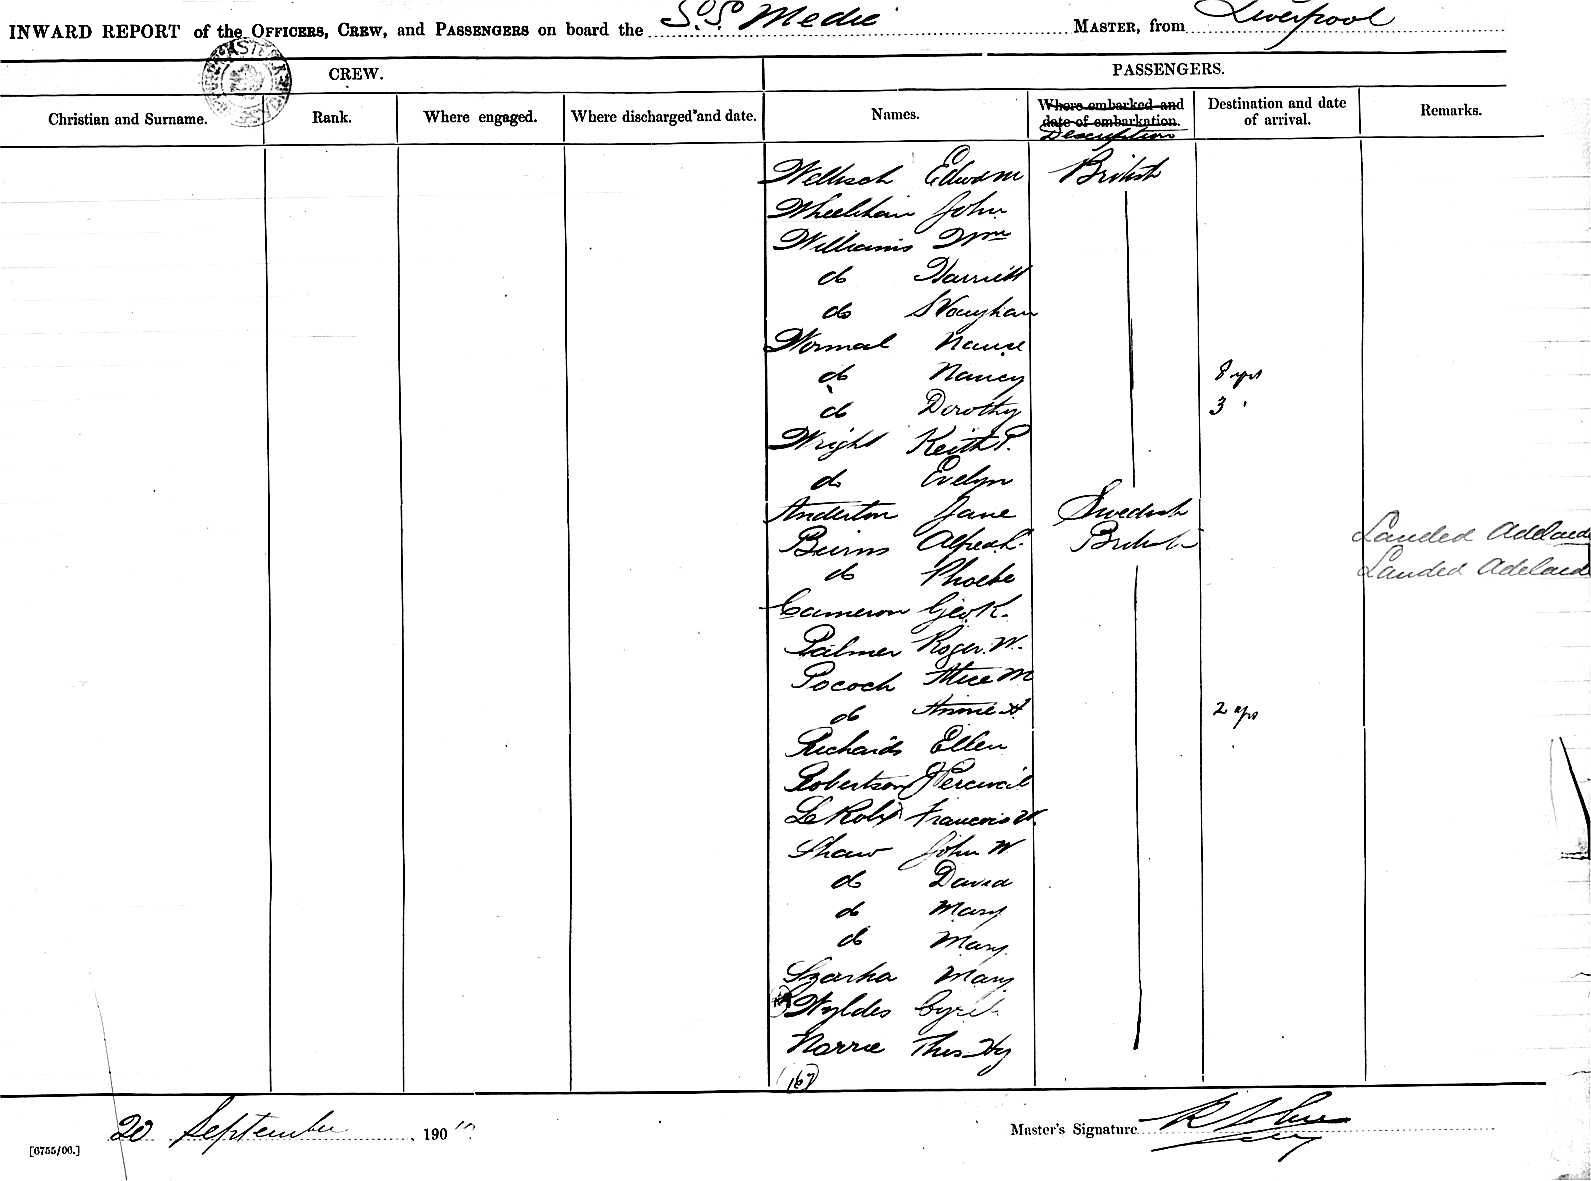 INWARD REPORT of the OFFICERS, CREW, and PASSENGERS on board the S.S. Medic MASTER, from Liverpool
CREW. PASSENGERS.
Christian and Surname. Rank. Where engaged. Where discharged and date. Names. Where embarked and date of embarkation. Description Destination and date of arrival. Remarks.
Wellisch Edwd M British
Wheelihan John
Williams Wm
do Harriett
do S Vaughan
Wormal
do Nancy 8 yrs
do Dorothy 3 "
Wright Keith P.
do Evelyn
Anderton Jane Swedish
Burns Alfred L. British Landed Adelaide
do Phoebe Landed Adelaide
Cameron Geo K.
Palmer Roger W.
Pocock Alice M
do Annie A 2 yrs
Richards Ellen
Robertson J Percival
Le Francois W.
Shaw John W
do David
do Mary
do Mary
Szarka Mary
Wyldes Cyril
Norrie Thos Hy
(167)
20 September 190
Master's Signature
[6755/06.]